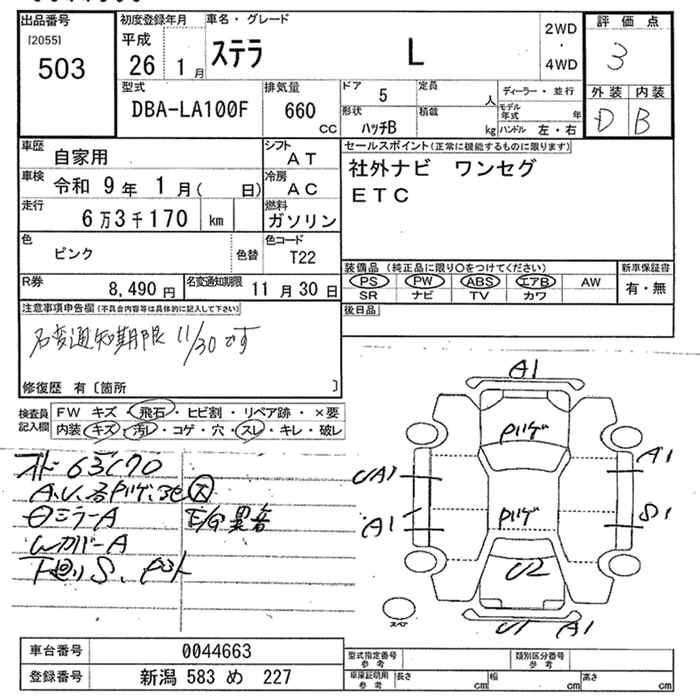 出品番号 初度登録年月 車名・グレード 評価点
[2055] 平成 2WD
503 26 1月 ステラ L ・ 3
4WD
型式 排気量 ドア 5 定員 人 ディーラー・並行 外装 内装
DBA-LA100F 660 cc 形状 ハッチB 積載 kg モデル年式 年 D B
ハンドル 左・右
車歴 自家用 シフト AT セールスポイント(正常に機能するものに限ります)
車検 令和 9年 1月( 日) 冷房 AC 社外ナビ ワンセグ
走行 6万3千170 km 燃料 ガソリン ETC
色 ピンク 色替 色コード T22
R券 8,490円 名変通知期限 11月30日 装備品(純正品に限り○をつけてください) 新車保証書
PS PW ABS エアB AW 有・無
SR ナビ TV カワ
注意事項申告欄(不具合内容等は具体的に記入して下さい) 後日品
名変通知期限 11/30です
修復歴 有〔箇所 〕
検査員記入欄 FW キズ・飛石・ヒビ割・リペア跡・×要
内装・キズ・汚レ・コゲ・穴・スレ・キレ・破レ
A1
Pハゲ
UA1 A1
Pハゲ
A1 S1
U2
U1 A1
スペア
オド 63170
ミラーA E/G異音
WカバーA
下廻りS、
車台番号 0044663
登録番号 新潟 583 め 227
型式指定番号 参考 類別区分番号 参考
車庫証明用 参考 長さ cm 幅 cm 高さ cm